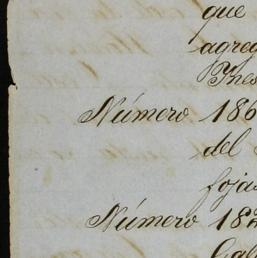 que
agreg
Ynes
Número 186
del
fojas
Número 18